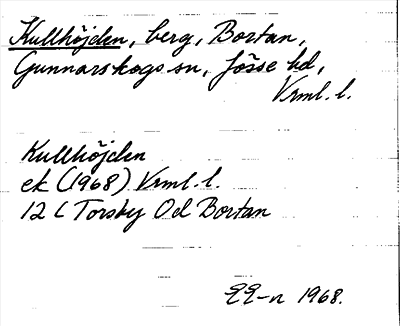 Kullhöjden, berg, Bortan,
Gunnarskogs sn, Jösse hd,
Vrml. l.
Kullhöjden
ek (1968) Vrml. l.
12 C Torsby Od Bortan
EE-n 1968.